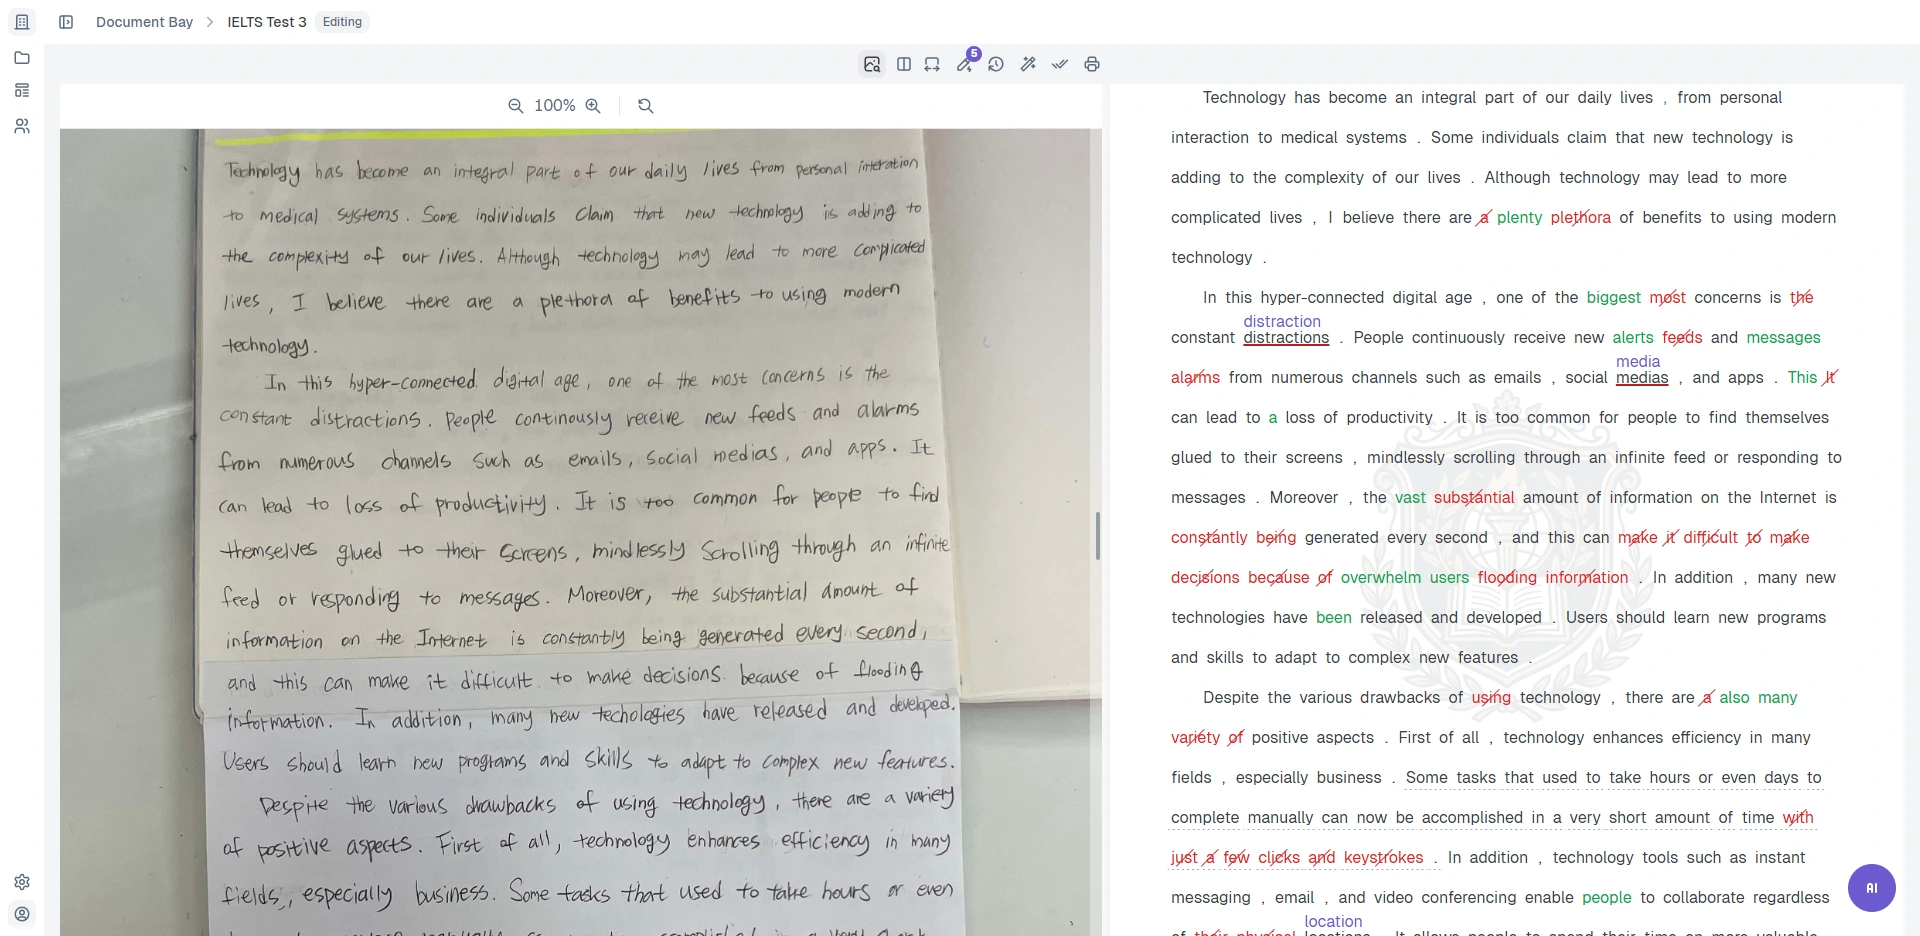 Document Bay > IELTS Test 3 Editing
5
100%
Technology has become an integral part of our daily lives from personal interation
to medical systems. Some individuals claim that new technology is adding to
the complexity of our lives. Although technology may lead to more complicated
lives, I believe there are a plethora of benefits to using modern
technology.
In this hyper-connected digital age, one of the most concerns is the
constant distractions. People continously receive new feeds and alarms
from numerous channels such as emails, social medias, and apps. It
can lead to loss of productivity. It is too common for people to find
themselves glued to their screens, mindlessly scrolling through an infinite
feed or responding to messages. Moreover, the substantial amount of
information on the Internet is constantly being generated every second,
and this can make it difficult to make decisions because of flooding
information. In addition, many new techologies have released and developed.
Users should learn new programs and skills to adapt to complex new features.
Despite the various drawbacks of using technology, there are a variety
of positive aspects. First of all, technology enhances efficiency in many
fields, especially business. Some tasks that used to take hours or even
Technology has become an integral part of our daily lives , from personal
interaction to medical systems . Some individuals claim that new technology is
adding to the complexity of our lives . Although technology may lead to more
complicated lives , I believe there are a plenty plethora of benefits to using modern
technology .
In this hyper-connected digital age , one of the biggest most concerns is the
distraction
constant distractions . People continuously receive new alerts feeds and messages
media
alarms from numerous channels such as emails , social medias , and apps . This It
can lead to a loss of productivity . It is too common for people to find themselves
glued to their screens , mindlessly scrolling through an infinite feed or responding to
messages . Moreover , the vast substantial amount of information on the Internet is
constantly being generated every second , and this can make it difficult to make
decisions because of overwhelm users flooding information . In addition , many new
technologies have been released and developed . Users should learn new programs
and skills to adapt to complex new features .
Despite the various drawbacks of using technology , there are a also many
variety of positive aspects . First of all , technology enhances efficiency in many
fields , especially business . Some tasks that used to take hours or even days to
complete manually can now be accomplished in a very short amount of time with
just a few clicks and keystrokes . In addition , technology tools such as instant
messaging , email , and video conferencing enable people to collaborate regardless
location
of their physical locations . It allows people to spend their time on more valuable
AI